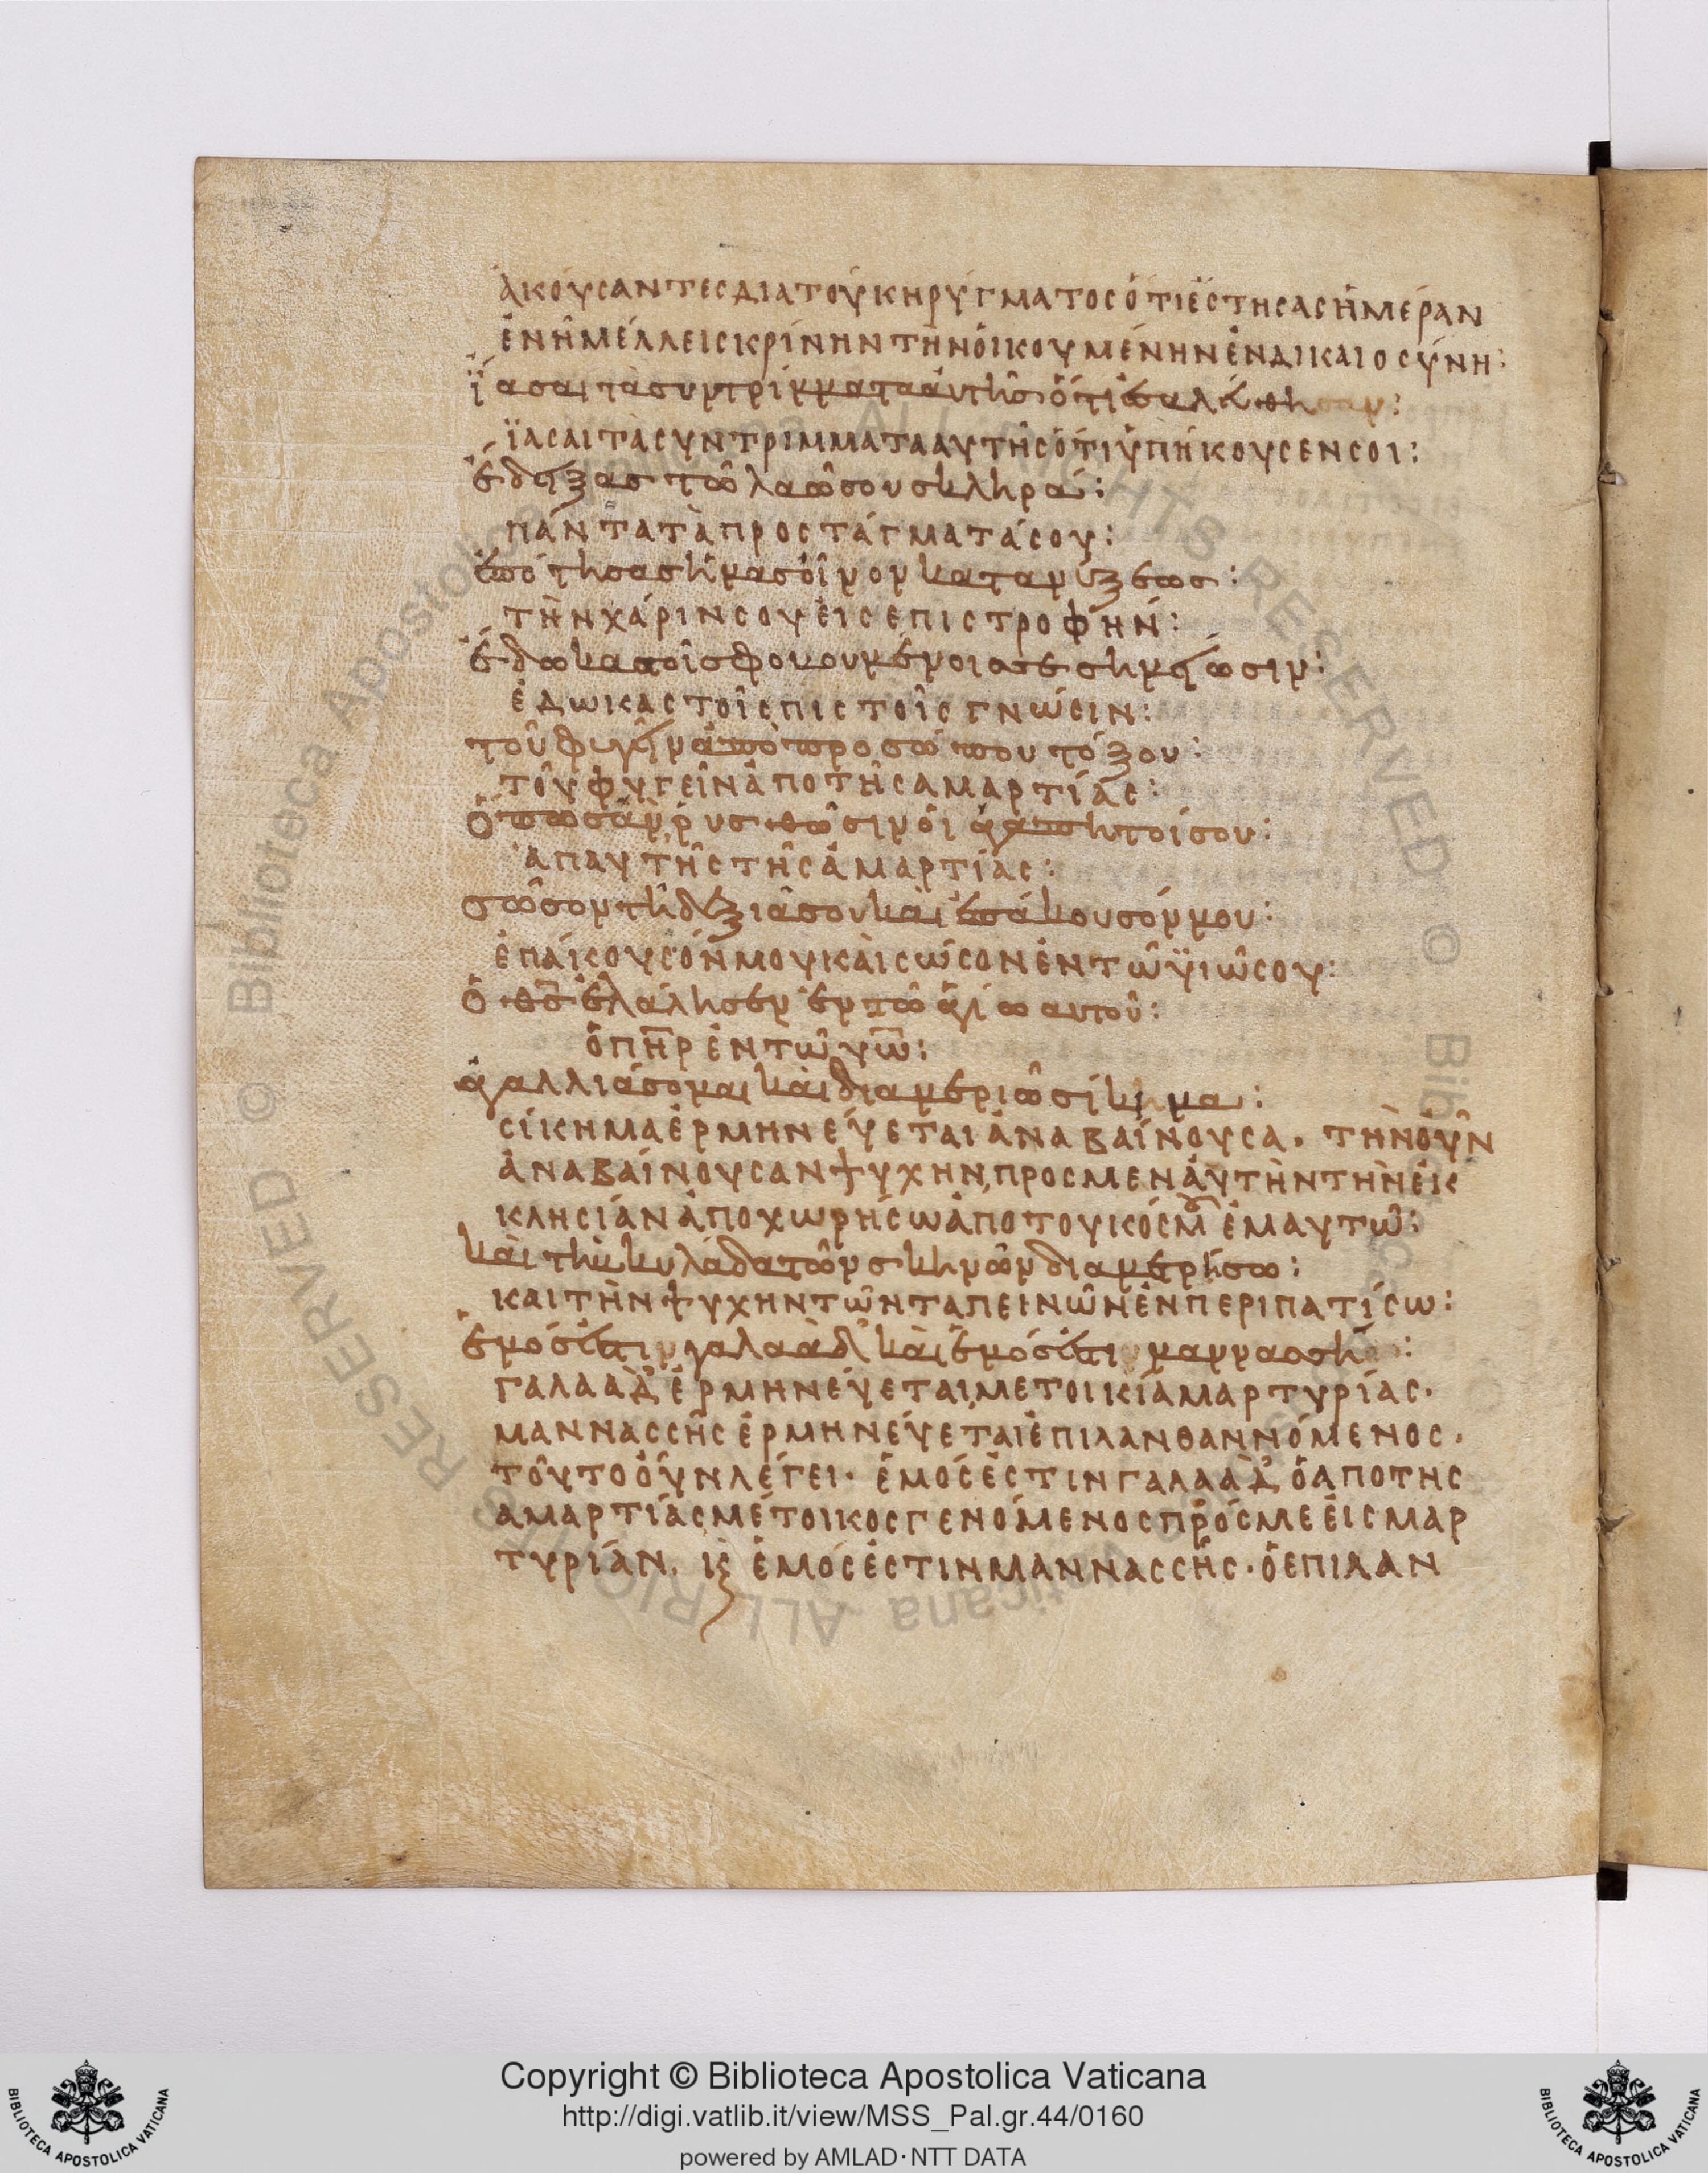 ἀκούσαντες διατοῦ κηρύγματος ὅτι ἔστησας ἡμέραν
ἐν ᾗ μέλλεις κρίνην τὴν οἰκουμένην ἐν δικαιοσύνη:
ἴασαι τὰ συντρίμματα ἀυτῆς ὅτι ἐσαλεύθησαν:
ἴασαι τὰ συντριμματα αυτῆς ὅτι ὑπήκουσεν σοι:
ἔδειξας τῶ λαῶ σου σκληρά:
πάντα τὰ προστάγματά σου:
ἐπότησας ἡμας οἶνον κατανύξεως:
τὴν χάριν σου εἰς επιστροφήν:
ἔδωκας τοῖς φοβουμένοις σε σημείωσιν:
ἐδωκας τοῖς πιστοῖς γνώσιν:
τοῦ φυγεῖν ἀπὸ προσώπου τόξου:
τοῦ φυγεῖν ἀπο τῆς αμαρτίας:
ὅπως ἂν ρυσθῶσιν ὁι ἀγαπητοί σου:
ἀπ αυτῆς τῆς ἁμαρτίας:
σῶσον τῆ δεξιᾶ σου καὶ ἐπάκουσόν μου:
ἐπάκουσόν μου καὶ σώσον ἐν τῶ ϋιῶ σου:
ὁ θς ἐλάλησεν ἐν τῶ ἁγίω αυτοῦ:
ὁ πηρ ἐν τῶ υω:
ἀγαλλιάσομαι καὶ διαμεριῶ σίκημα:
σίκημα ἑρμηνεύεται ἀναβαίνουσα. τὴν οὖν
ἀναβαίνουσαν ψυχην, προς μεν ἀυτὴν τὴν ἐκ
κλησίαν ἀποχωρήσω ἀπο του κόσμ ἐμαυτῶ:
καὶ τὴν κυλάδα τῶν σκηνῶν διαμετρήσω:
και τὴν ψυχην τῶν ταπεινῶν ἐνπεριπατίσω:
ἐμός ἐστιν γαλαὰδ καὶ ἐμός ἐστιν μαννασσή:
γαλααδ ἑρμηνεύεται, μετοικία μαρτυρίας.
μαννασσῆς ἑρμηνεύεται ἐπιλανθαννόμενος.
τοῦτο οὖν λέγει. ἐμός ἐστιν γαλααδ ὁ απο της
αμαρτίας μέτοικος γενόμενος πρός με εἰς μαρ
τυρίαν. κς ἐμός ἐστιν μαννασσῆς. ὁ επιλαν
Copyright © Biblioteca Apostolica Vaticana
http://digi.vatlib.it/view/MSS_Pal.gr.44/0160
powered by AMLAD·NTT DATA
BIBLIOTECA APOSTOLICA VATICANA
BIBLIOTECA APOSTOLICA VATICANA